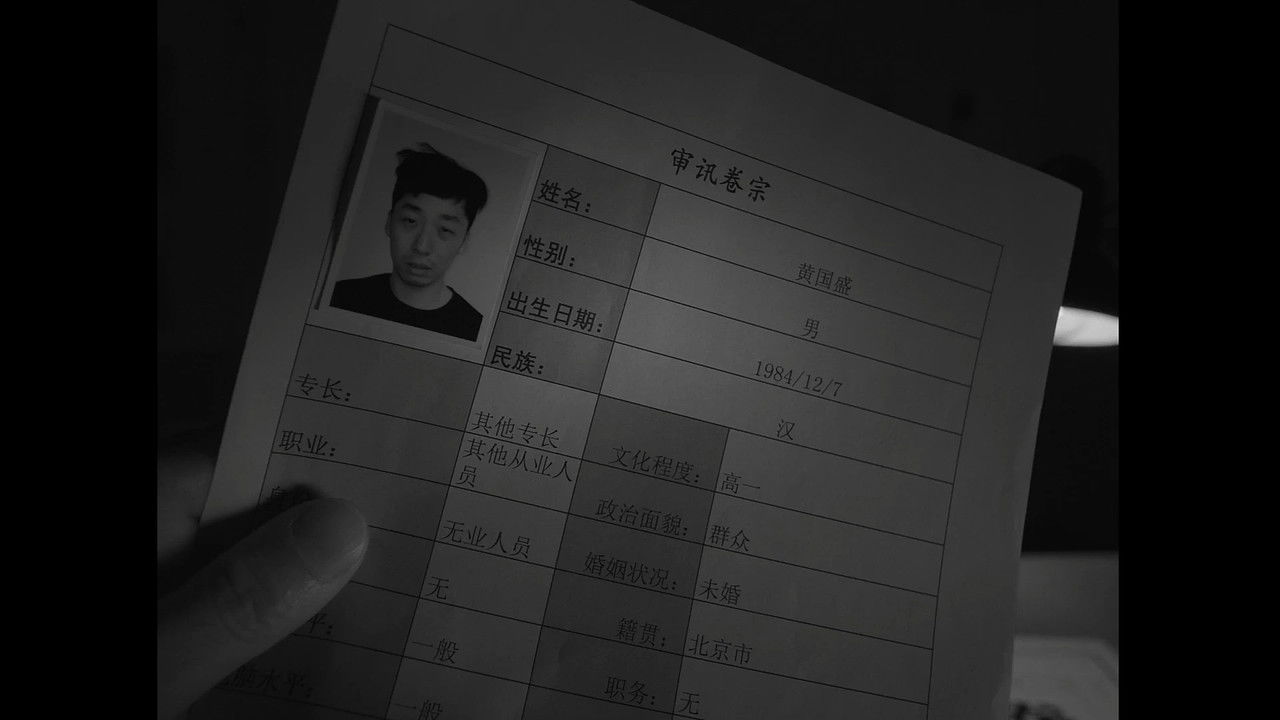 审讯卷宗
姓名: 黄国盛
性别: 男
出生日期: 1984/12/7
民族: 汉
专长: 其他专长 文化程度: 高一
职业: 其他从业人员 政治面貌: 群众
无业人员 婚姻状况: 未婚
无 籍贯: 北京市
平: 一般 职务: 无
水平: 一般